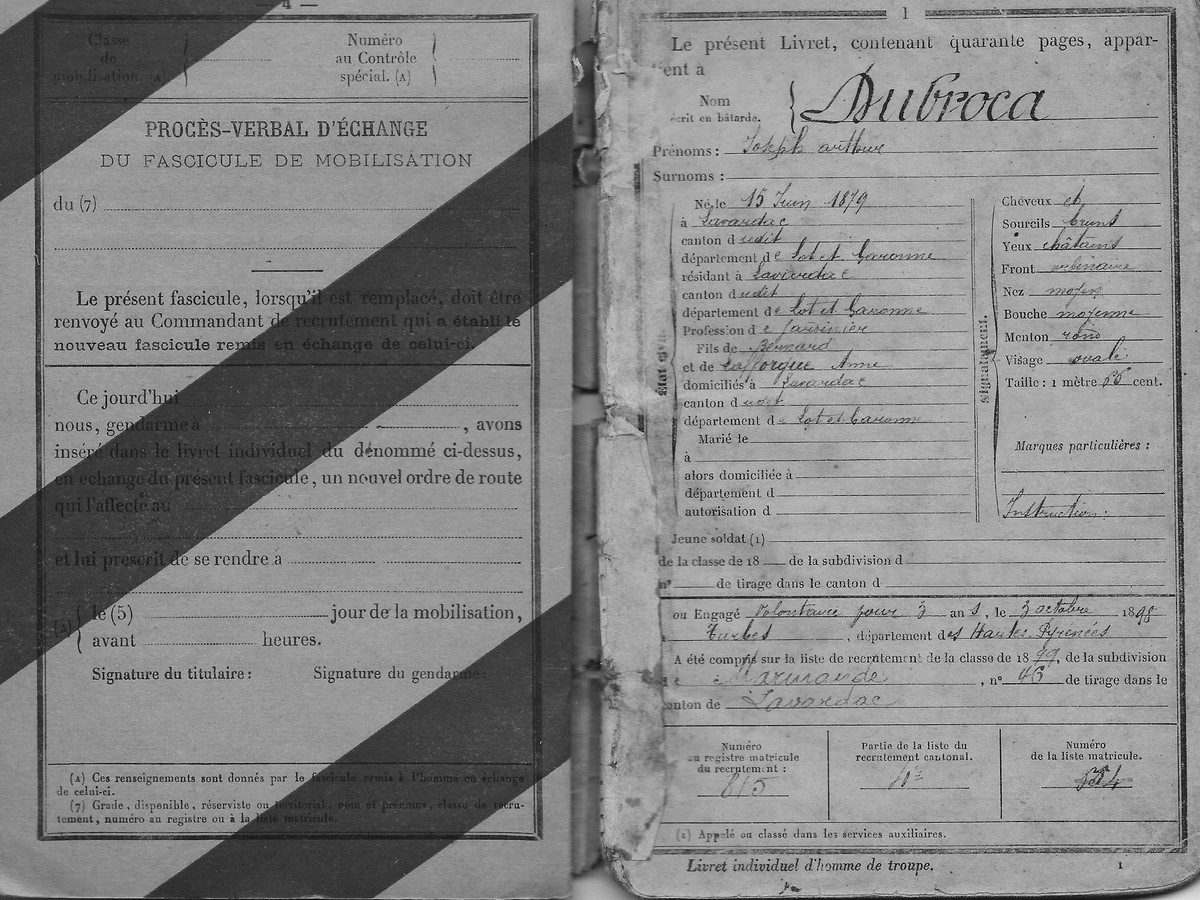 — 4 —
Classe
de
mobilisation. (A)
Numéro
au Contrôle
spécial. (A)
PROCÈS-VERBAL D'ÉCHANGE
DU FASCICULE DE MOBILISATION
du (7)
Le présent fascicule, lorsqu'il est remplacé, doit être
renvoyé au Commandant de recrutement qui a établi le
nouveau fascicule remis en échange de celui-ci.
Ce jourd'hui
nous, gendarme à , avons
inséré dans le livret individuel du dénommé ci-dessus,
en échange du présent fascicule, un nouvel ordre de route
qui l'affecte au
et lui prescrit de se rendre à
(A) le (5) jour de la mobilisation,
avant heures.
Signature du titulaire : Signature du gendarme :
(A) Ces renseignements sont donnés par le fascicule remis à l'homme en échange
de celui-ci.
(7) Grade, disponible, réserviste ou territorial, nom et prénoms, classe de recru-
tement, numéro au registre ou à la liste matricule.
1
Le présent Livret, contenant quarante pages, appar-
ent à
Nom
écrit en bâtarde.
Dubroca
Prénoms : Joseph arthur
Surnoms :
État civil.
Né le 15 Juin 1879
à Lavardac
canton d udit
département de Lot et Garonne
résidant à Lavardac
canton d udit
département de Lot et Garonne
Profession de Jardinier
Fils de Bernard
et de Lafforgue Anne
domiciliés à Lavardac
canton d udit
département de Lot et Garonne
Marié le
à
alors domiciliée à
département d
autorisation d
Signalement.
Cheveux et
Sourcils bruns
Yeux châtains
Front ordinaire
Nez moyen
Bouche moyenne
Menton rond
Visage ovale
Taille : 1 mètre cent.
Marques particulières :
Instruction :
Jeune soldat (1)
de la classe de 18 de la subdivision d
n° de tirage dans le canton d
ou Engagé Volontaire pour 3 ans, le 3 octobre 1898
Tarbes , département des Hautes Pyrénées
A été compris sur la liste de recrutement de la classe de 1899, de la subdivision
de Marmande , n° 46 de tirage dans le
canton de Lavardac
Numéro
au registre matricule
du recrutement :
815
Partie de la liste du
recrutement cantonal.
Numéro
de la liste matricule.
(1) Appelé ou classé dans les services auxiliaires.
Livret individuel d'homme de troupe. 1